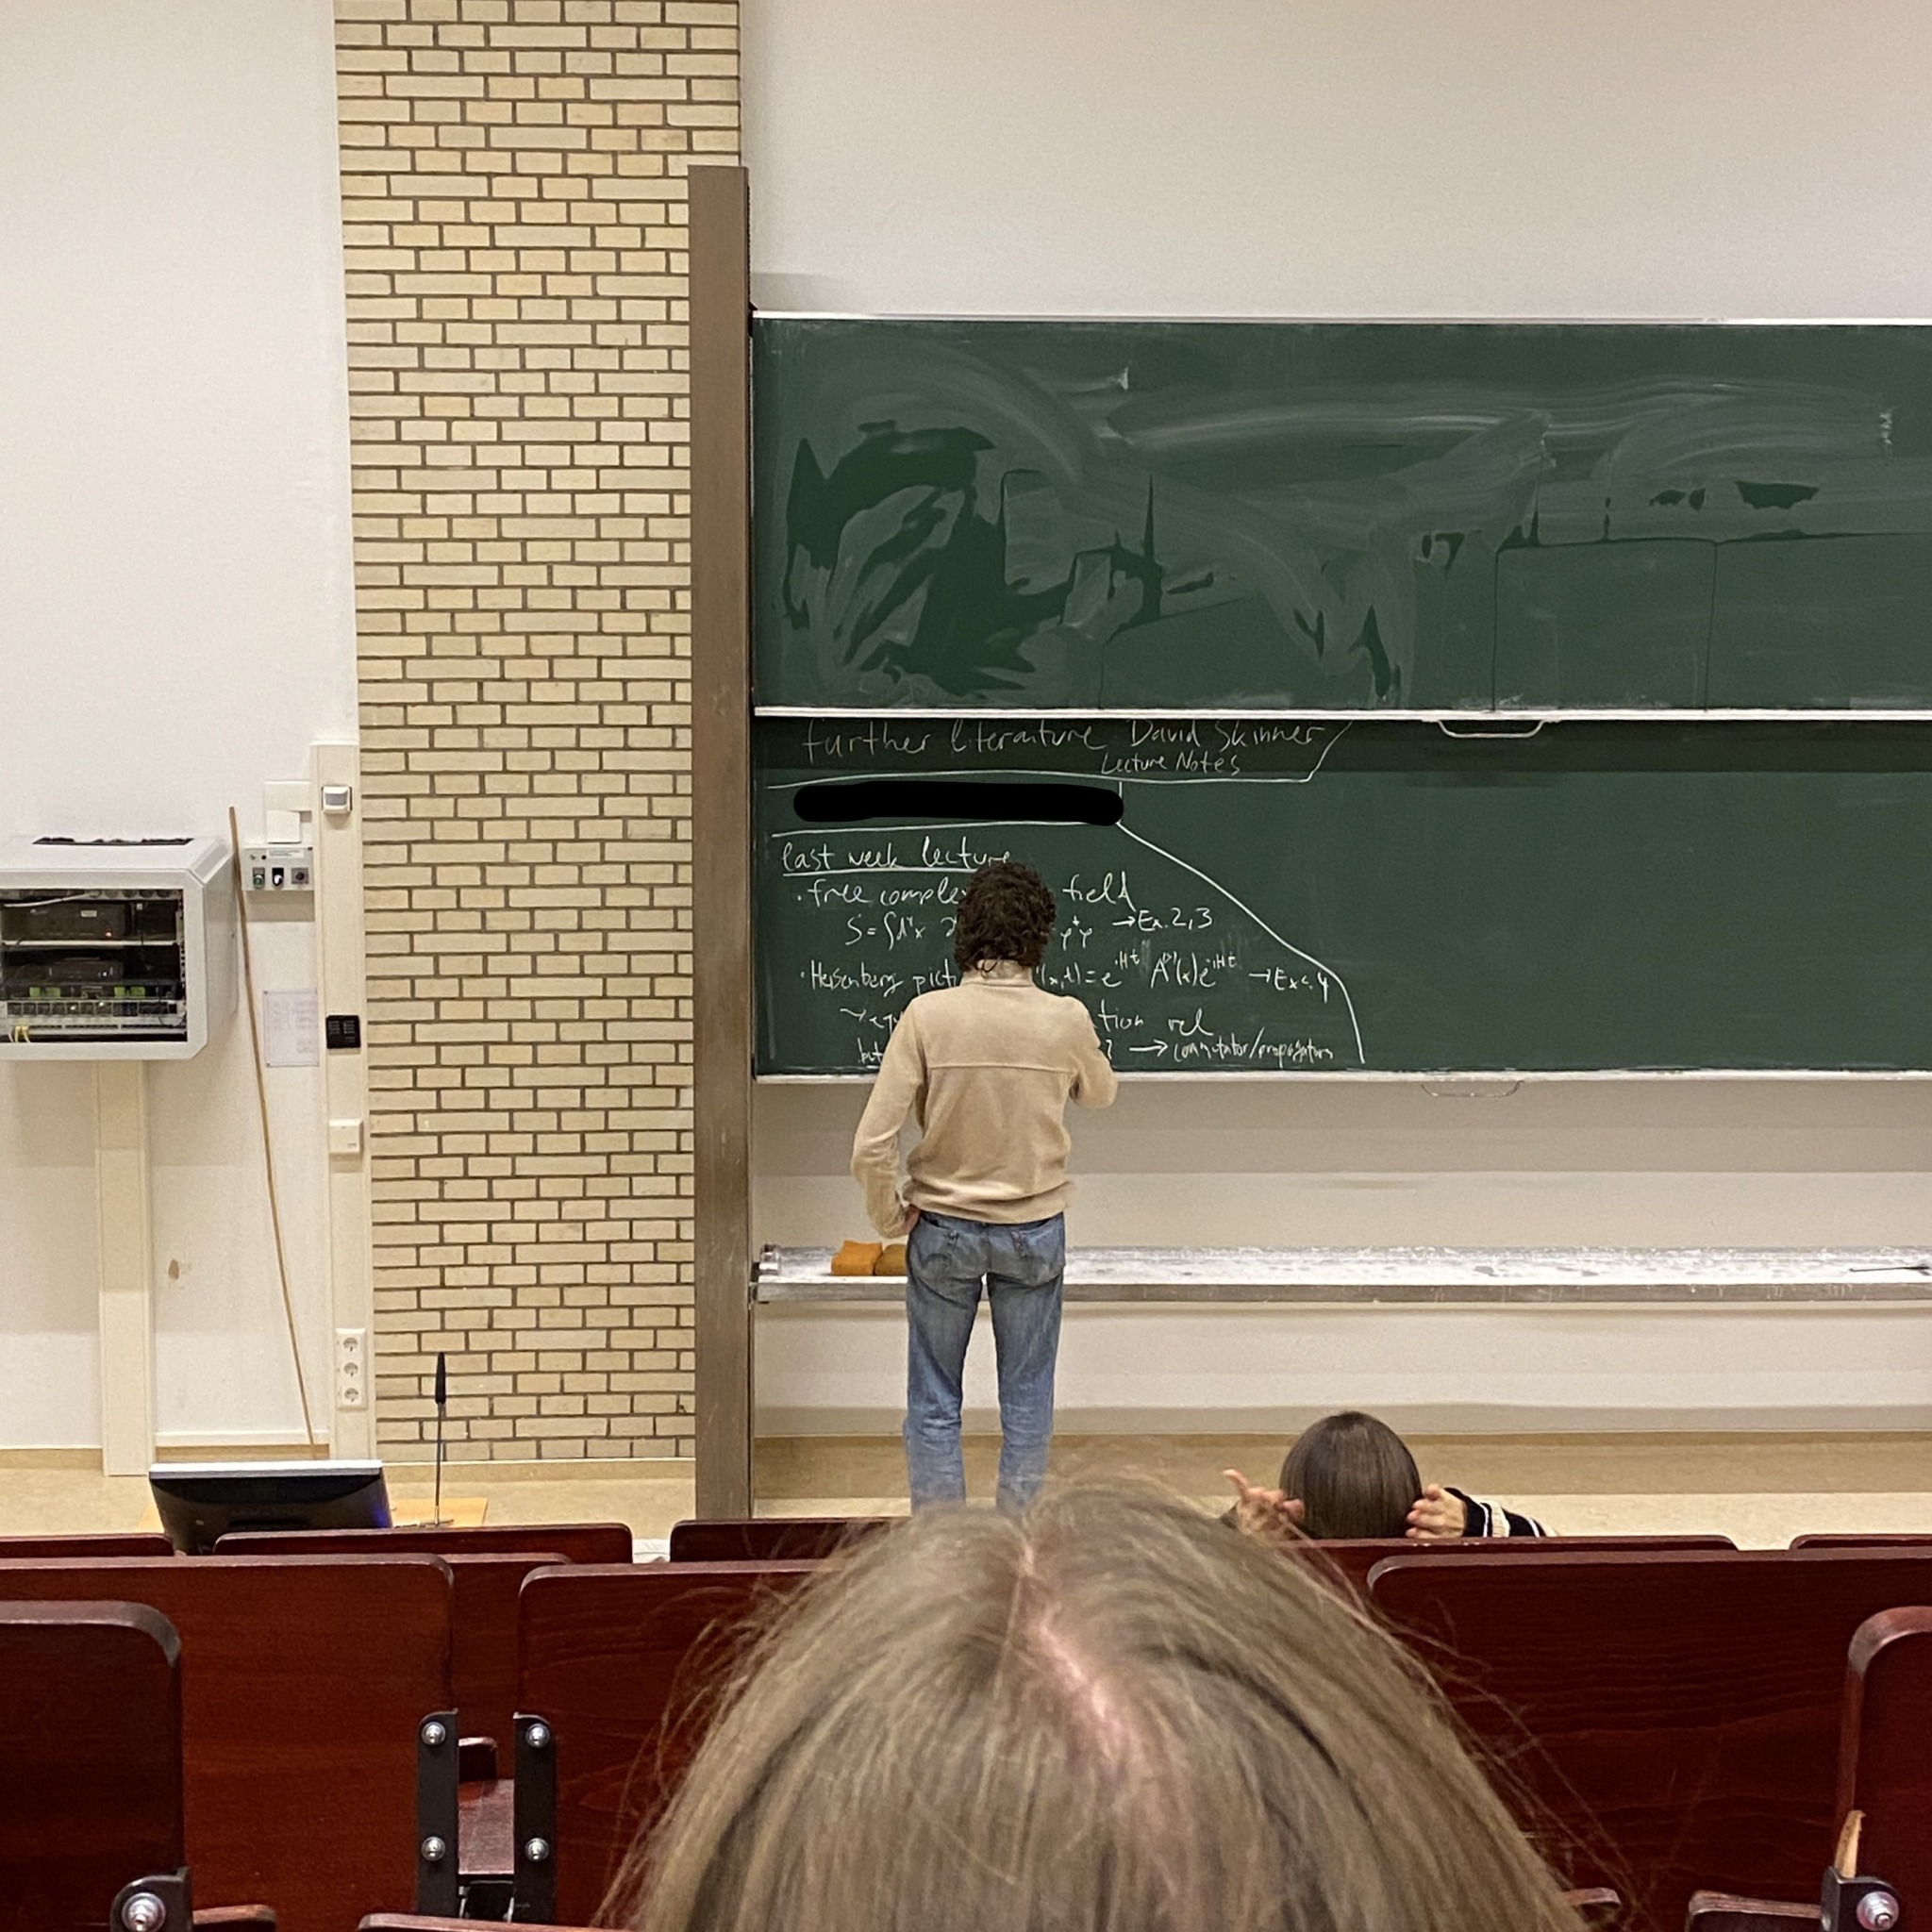 further literature David Skinner
Lecture Notes
last week lecture
· free comple field
S = ∫d⁴x φ†φ → Ex. 2, 3
· Heisenberg pict (x,t) = e^iHt A^(s)(x) e^-iHt → Exc. 4
tion rel
but ? → commutator/propagators